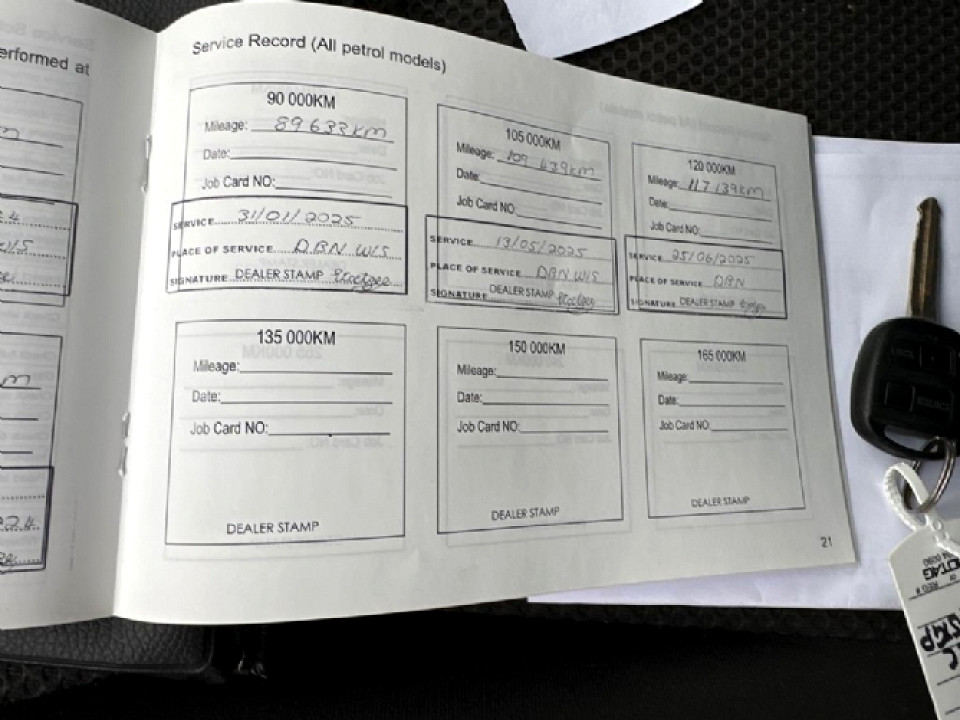 erformed at
Service Record (All petrol models)
90 000KM
Mileage: 89 633km
Date:
Job Card NO:
SERVICE 31/01/2025
PLACE OF SERVICE DBN W/S
SIGNATURE DEALER STAMP
105 000KM
Mileage: 109 439km
Date:
Job Card NO:
SERVICE 13/05/2025
PLACE OF SERVICE DBN W/S
SIGNATURE DEALER STAMP
120 000KM
Mileage: 117 139km
Date:
Job Card NO:
SERVICE 25/06/2025
PLACE OF SERVICE DBN
SIGNATURE DEALER STAMP
135 000KM
Mileage:
Date:
Job Card NO:
DEALER STAMP
150 000KM
Mileage:
Date:
Job Card NO:
DEALER STAMP
165 000KM
Mileage:
Date:
Job Card NO:
DEALER STAMP
21
REG #